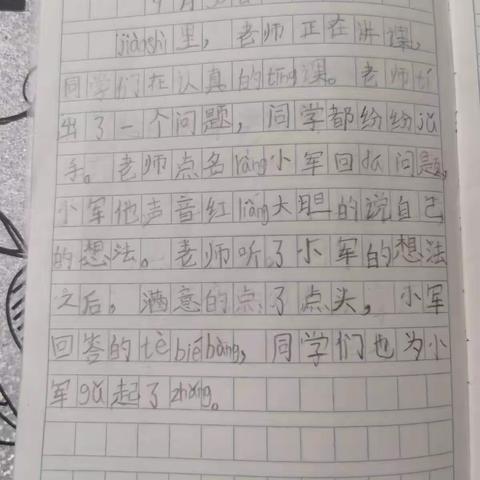 jiàoshì里，老师正在讲课，
同学们在认真的tīng课。老师tí
出了一个问题，同学都纷纷jǔ
手。老师点名ràng小军回答问题，
小军他声音红liàng大胆的说自己
的想法。老师听了小军的想法
之后。满意的点了点头，小军
回答的tè biébàng，同学们也为小
军gǔ起了zhǎng。